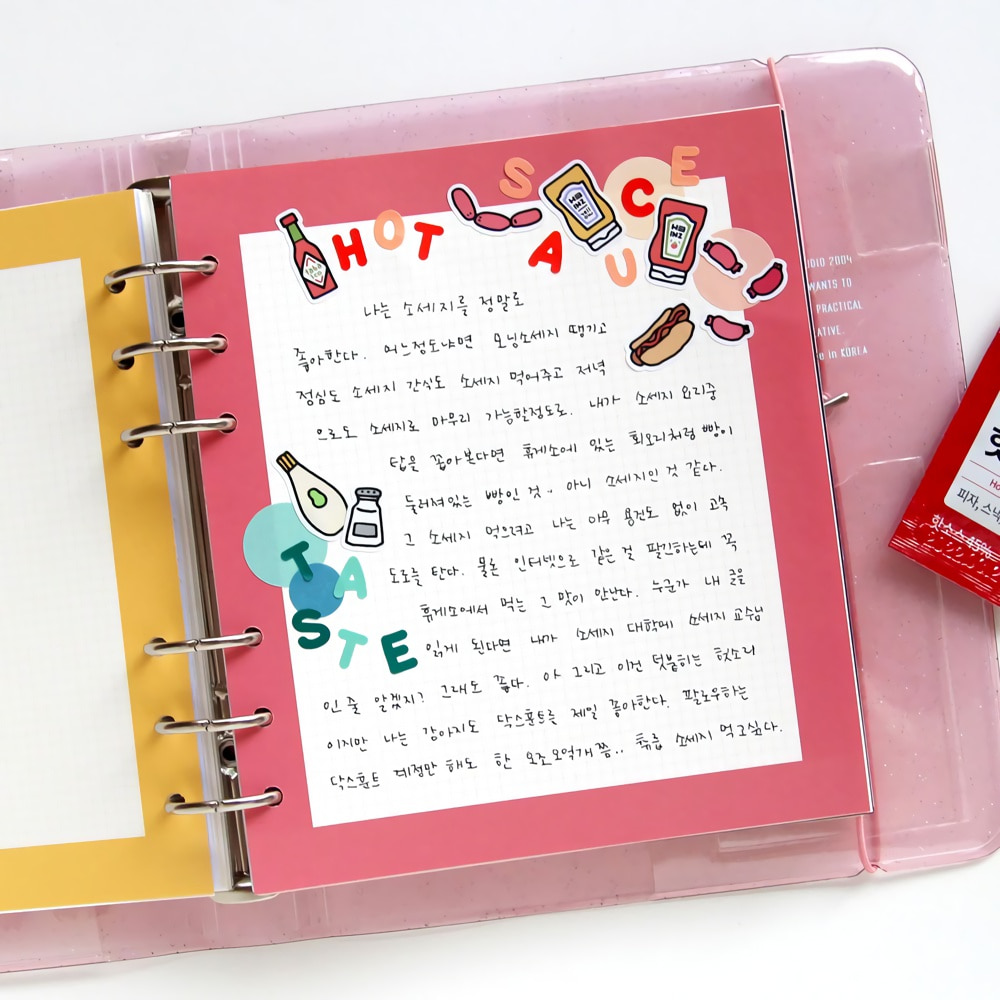 HOT SAUCE
나는 소세지를 정말로
좋아한다. 어느정도냐면 모닝소세지 땡기고
점심도 소세지 간식도 소세지 먹어주고 저녁
으로도 소세지로 마무리 가능할정도로. 내가 소세지 요리중
탑을 꼽아본다면 휴게소에 있는 회오리처럼 빵이
둘러져있는 빵인 것.. 아니 소세지인 것 같다.
그 소세지 먹으려고 나는 아무 용건도 없이 고속
도로를 탄다. 물론 인터넷으로 같은 걸 팔긴하는데 꼭
휴게소에서 먹는 그 맛이 안난다. 누군가 내 글을
읽게 된다면 내가 소세지 대학에 소세지 교수님
인 줄 알겠지? 그래도 좋다. 아 그리고 이건 덧붙히는 헛소리
이지만 나는 강아지도 닥스훈트를 제일 좋아한다. 팔로우하는
닥스훈트 계정만 해도 한 오조오억개쯤.. 츄릅 소세지 먹고싶다.
TASTE
taba
sco
HA
INZ
HA
INZ
DIO 2004
WANTS TO
PRACTICAL
ATIVE.
in KOREA
핫
Ho
피자, 스낵
핫소스 45%